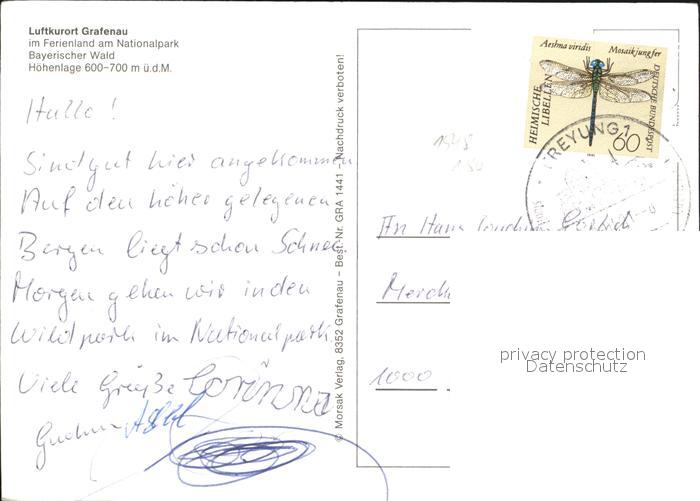 Luftkurort Grafenau
im Ferienland am Nationalpark
Bayerischer Wald
Höhenlage 600–700 m ü.d.M.
Hallo!
Sind gut hier angekommen.
Auf den höher gelegenen
Bergen liegt schon Schnee.
Morgen gehen wir in den
Wildpark im Nationalpark.
Viele Grüße Corinna
Gudrun Axel
© Morsak Verlag, 8352 Grafenau – Best.-Nr. GRA 1441 – Nachdruck verboten!
Aeshna viridis Mosaikjungfer
HEIMISCHE LIBELLEN
DEUTSCHE BUNDESPOST
60
FREYUNG 1
An Hans
1000
privacy protection
Datenschutz